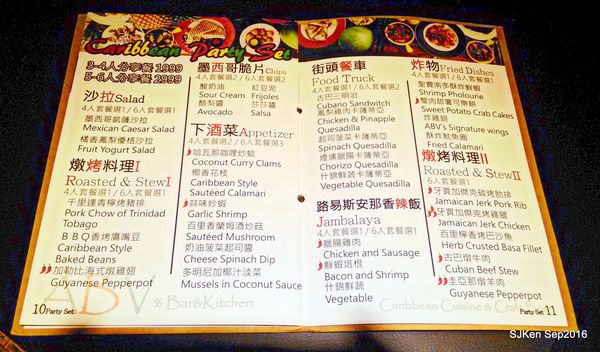 Caribbean Party Set
3-4人分享餐 1999
5-6人分享餐 2999
沙拉Salad
4人套餐選1 / 6人套餐選1
墨西哥凱薩沙拉
Mexican Caesar Salad
橘香鳳梨優格沙拉
Fruit Yogurt Salad
燉烤料理I
Roasted & Stew I
4人套餐選1 / 6人套餐選1
千里達青檸烤豬排
Pork Chow of Trinidad
Tobago
BBQ香烤鷹嘴豆
Caribbean Style
Baked Beans
加勒比海式燉雞翅
Guyanese Pepperpot
10 Party Set
墨西哥脆片Chips
4人套餐選2 / 6人套餐選2
酸奶油 紅豆泥
Sour Cream Frijoles
酪梨醬 莎莎醬
Avocado Salsa
下酒菜Appetizer
4人套餐選2 / 6人套餐選3
哈瓦那咖哩炒蛤
Coconut Curry Clams
椰香花枝
Caribbean Style
Sautéed Calamari
蒜味炒蝦
Garlic Shrimp
百里香蘭姆酒炒菇
Sautéed Mushroom
奶油菠菜起司醬
Cheese Spinach Dip
多明尼加椰汁淡菜
Mussels in Coconut Sauce
ABV
& Bar&Kitchen
街頭餐車
Food Truck
4人套餐選1 / 6人套餐選2
古巴三明治
Cubano Sandwich
鳳梨雞肉卡薩蒂亞
Chicken & Pinapple
Quesadilla
起司菠菜卡薩蒂亞
Spinach Quesadilla
煙燻臘腸卡薩蒂亞
Chorizo Quesadilla
什錦鮮蔬卡薩蒂亞
Vegetable Quesadilla
路易斯安那香辣飯
Jambalaya
4人套餐選1 / 6人套餐選1
臘腸雞肉
Chicken and Sausage
鮮蝦培根
Bacon and Shrimp
什錦鮮蔬
Vegetable
炸物Fried Dishes
4人套餐選1 / 6人套餐選1
聖費南多酥炸鮮蝦
Shrimp Pholourie
蟹肉甜薯可樂餅
Sweet Potato Crab Cakes
炸雞翅
ABV's Signature wings
酥炸魷魚圈
Fried Calamari
燉烤料理II
Roasted & Stew II
6人套餐選1
牙買加傑克碳烤肋排
Jamaican Jerk Pork Rib
牙買加傑克烤雞腿
Jamaican Jerk Chicken
百里檸香烤巴沙魚
Herb Crusted Basa Fillet
古巴燉牛肉
Cuban Beef Stew
圭亞那燉羊肉
Guyanese Pepperpot
Caribbean Cuisine & Craft
Party Set 11
SJKen Sep2016